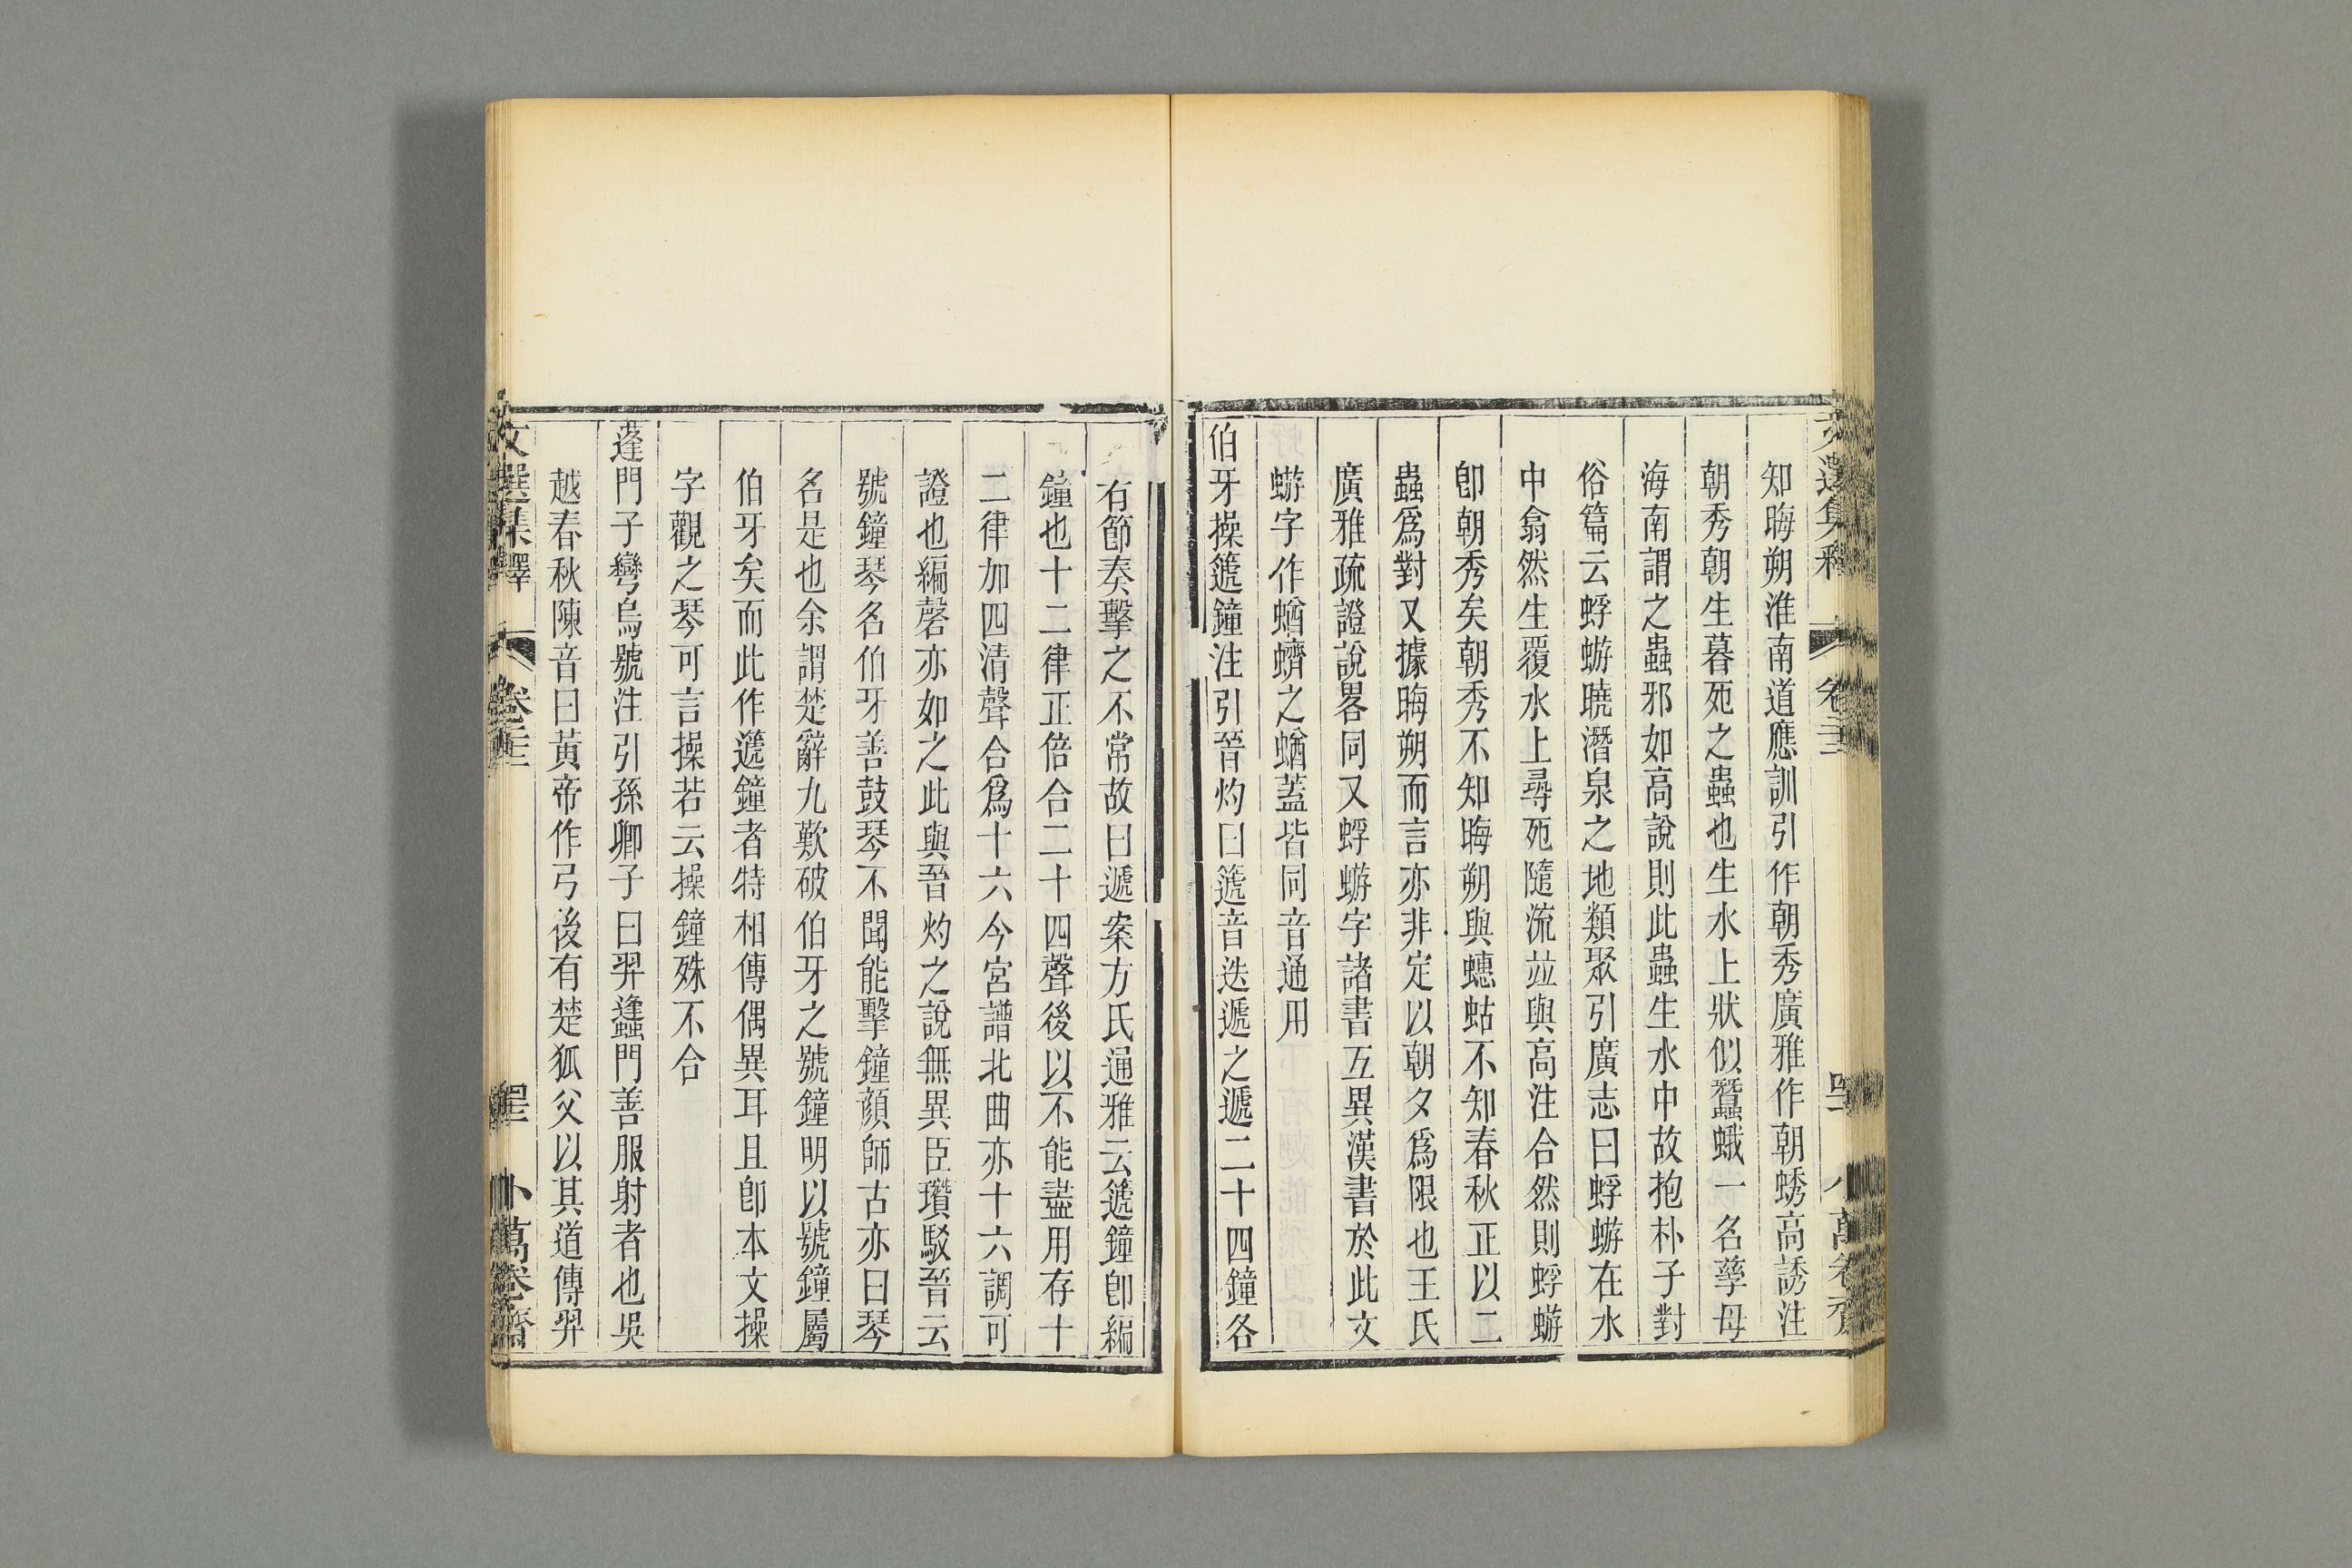 知晦朔淮南道應訓引作朝秀廣雅作朝蜏高誘注
朝秀朝生暮死之蟲也生水上狀似蠶蛾一名孳母
海南謂之蟲邪如高說則此蟲生水中故抱朴子對
俗篇云蜉蝣曉潛泉之地類聚引廣志曰蜉蝣在水
中翕然生覆水上尋死隨流竝與高注合然則蜉蝣
卽朝秀矣朝秀不知晦朔與蟪蛄不知春秋正以二
蟲爲對又據晦朔而言亦非定以朝夕爲限也王氏
廣雅疏證說畧同又蜉蝣字諸書互異漢書於此文
蝣字作蝤蠐之蝤蓋皆同音通用
伯牙操䉠鐘注引晉灼曰䉠音迭遞之遞二十四鐘各
有節奏擊之不常故曰遞案方氏通雅云䉠鐘卽編
鐘也十二律正倍合二十四聲後以不能盡用存十
二律加四清聲合爲十六今宮譜北曲亦十六調可
證也編磬亦如之此與晉灼之說無異臣瓚駁晉云
號鐘琴名伯牙善鼓琴不聞能擊鐘顏師古亦曰琴
名是也余謂楚辭九歎破伯牙之號鐘明以號鐘屬
伯牙矣而此作遞鐘者特相傳偶異耳且卽本文操
字觀之琴可言操若云操鐘殊不合
蓬門子彎烏號注引孫卿子曰羿蠭門善服射者也吳
越春秋陳音曰黃帝作弓後有楚狐父以其道傳羿
文選集釋
卷二十二
小萬卷齋